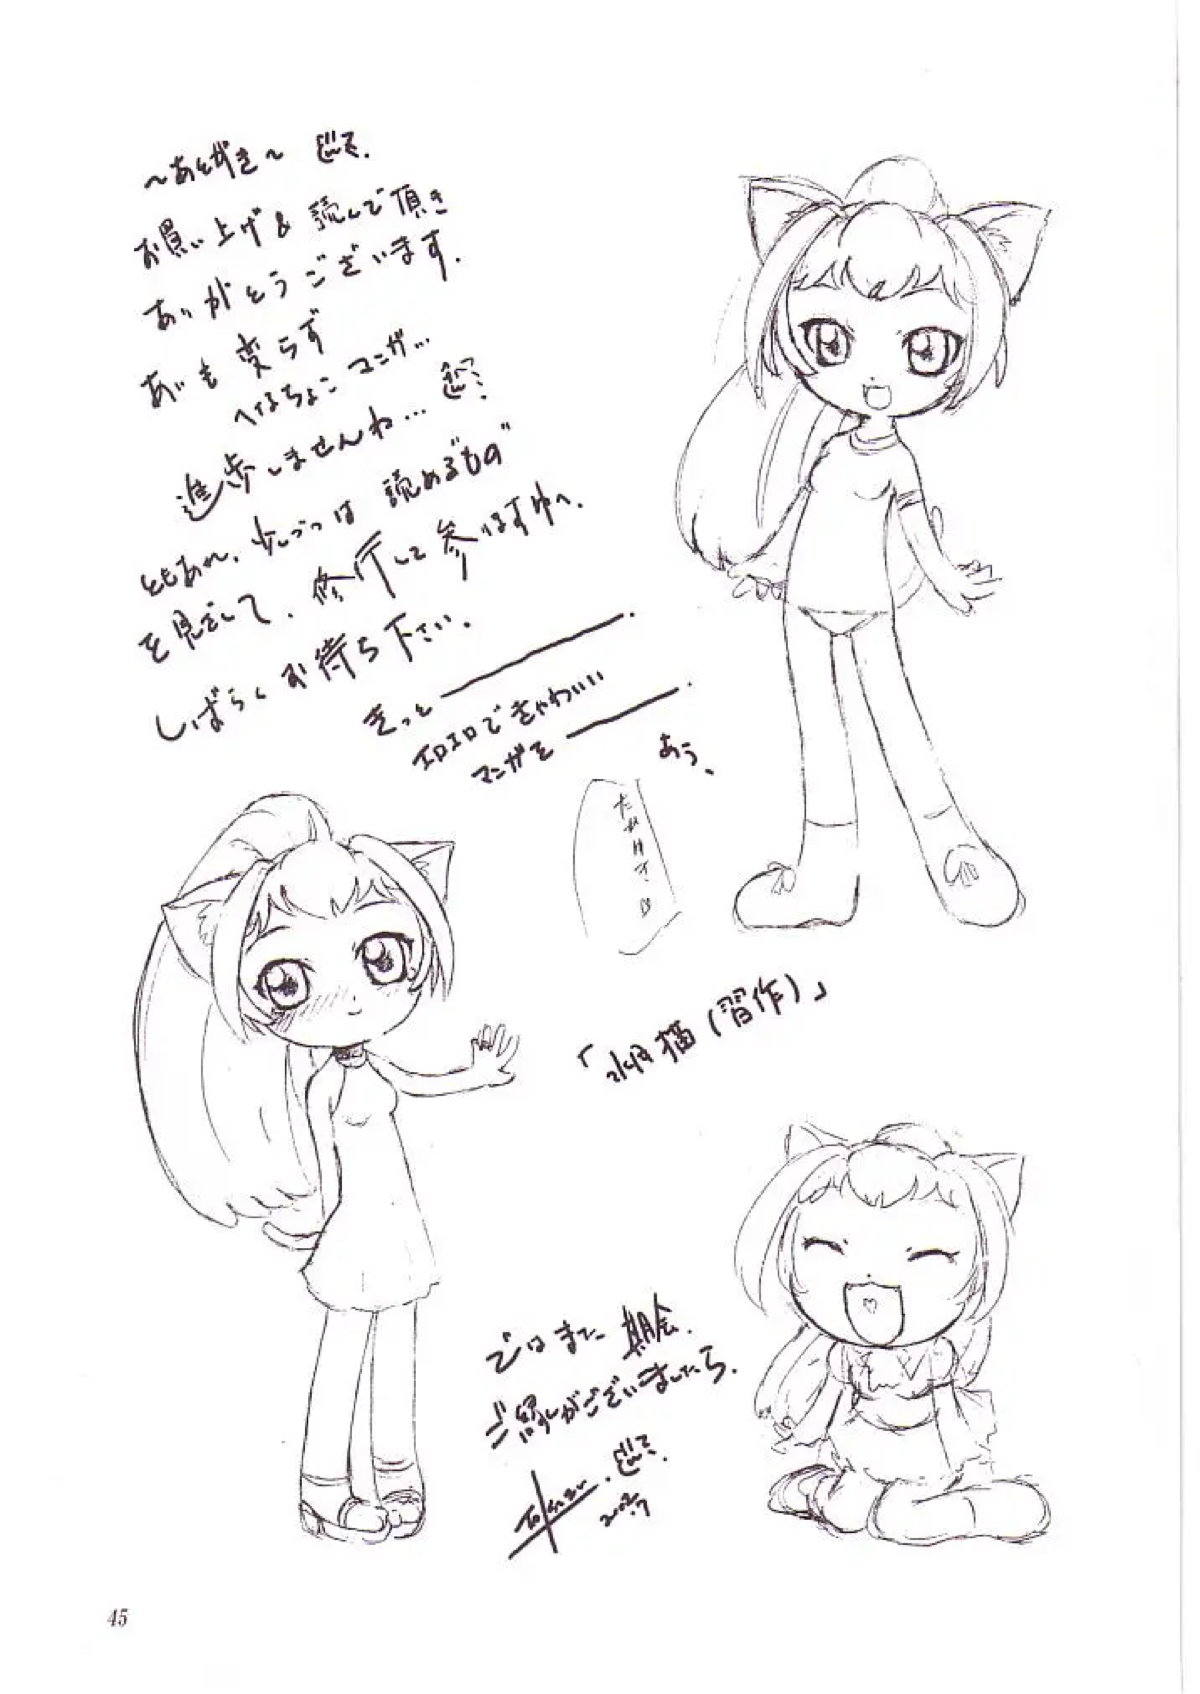 ～あとがき～
お買い上げ&読んで頂き
ありがとうございます.
あいも変らず
へなちょこマンガ…
進歩しませんね…
ともあれ、少しづつは読める"もの"
を見ざして、修行して参りますゆへ.
しばらくお待ち下さい.
きっと
エロエロできゃわいい
マンガを
あう、
猫(習作)」
ではまた 機会.
ご縁がございましたら.
2002.7
45